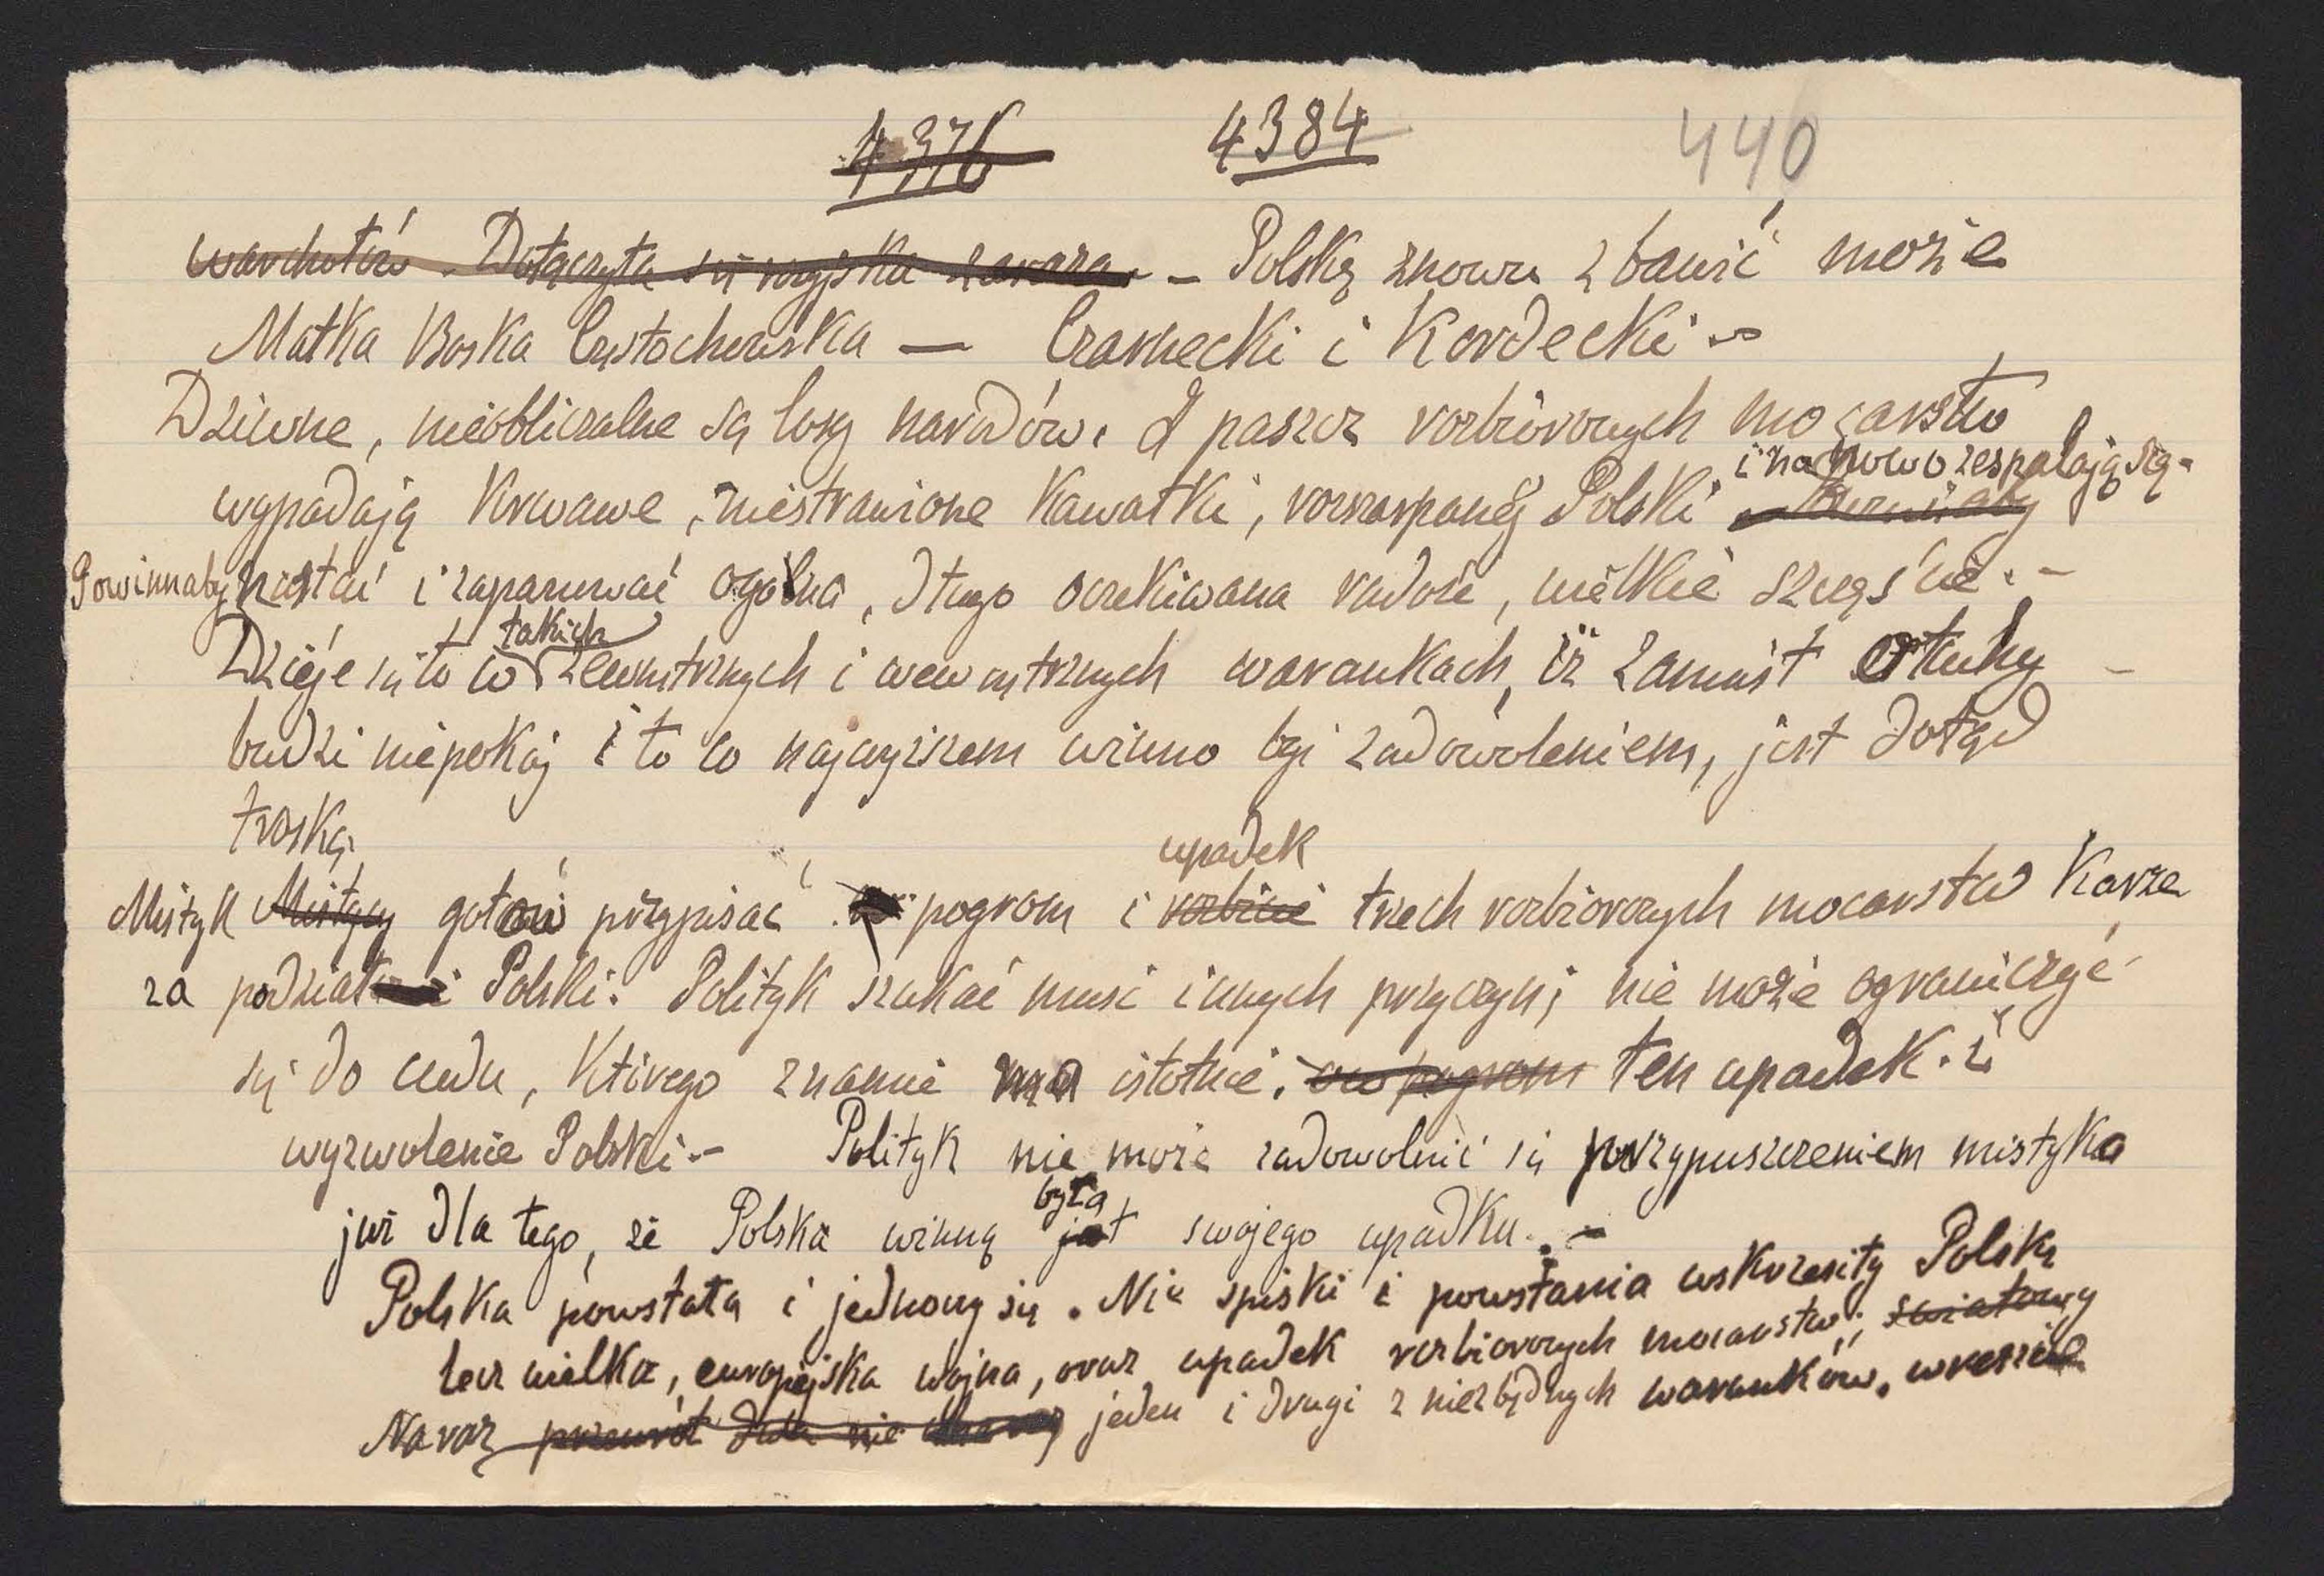 4376 4384 440
warchołów. Dołączyła się rosyjska zaraza. – Polskę znowu zbawić może
Matka Boska Częstochowska — Czarnecki i Kordecki –
Dziwne, nieobliczalne są losy narodów. Z paszcz rozbiorowych mocarstw
i na nowo zespalają się.
wypadają krwawe, niestrawione kawałki, rozszarpanej Polski
Powinnaby nastać i zapanować ogólna, długo oczekiwana radość, wielkie szczęście. –
takich
Dzieje się to w zewnętrznych i wewnętrznych warunkach, iż zamiast otuchy –
budzi niepokój i to co najwyższem winno być zadowoleniem, jest dotąd
troską.
upadek
Mistyk Mistycy gotów przypisać pogrom i rozbicie trzech rozbiorowych mocarstw karze
za podział Polski. Polityk szukać musi innych przyczyn; nie może ograniczyć
się do cudu, którego znamię ma istotnie. ów pogrom ten upadek. i
wyzwolenie Polski – Polityk nie może zadowolnić się przypuszczeniem mistyka
była
już dla tego, że Polska winną jest swojego upadku. –
Polska powstała i jednoczy się. Nie spiski i powstania wskrzesiły Polskę
lecz wielka, europejska wojna, oraz upadek rozbiorowych mocarstw; światowy
Naraz przewrót jeden i drugi z niezbędnych warunków. wreszcie